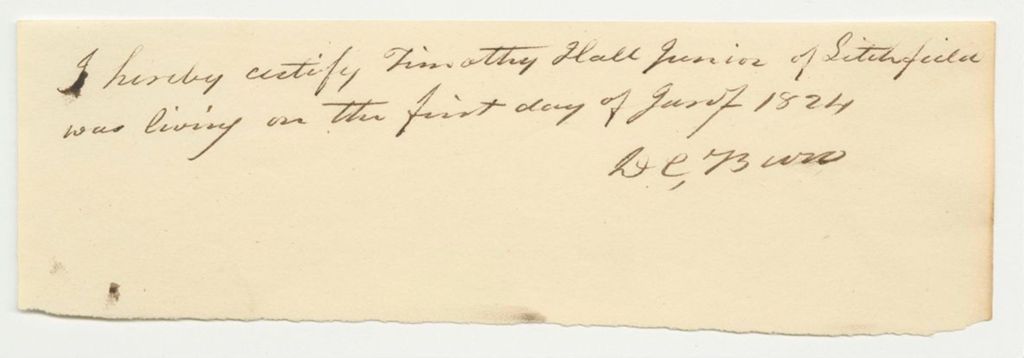 I hereby certify Timothy Hall Junior of Litchfield
was living on the first day of Jany 1824
D C, Burr